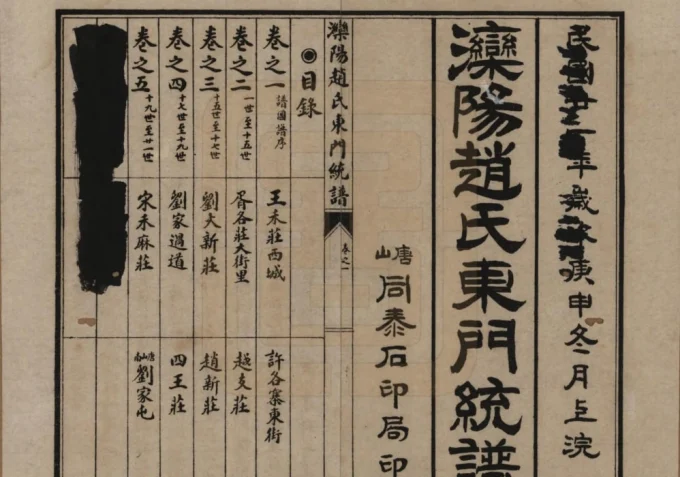 民國
年歲
庚申冬月上浣
灤陽趙氏東門統譜
唐山
同泰石印局印
灤陽趙氏東門統譜
卷之一
◉目錄
卷之一 譜圖譜序
王禾莊西城
許各寨東街
卷之二 一世至十五世
胥各莊大街里
越支莊
卷之三 十五世至十七世
劉大新莊
趙新莊
卷之四 十七世至十九世
劉家過道
四王莊
卷之五 十九世至廿一世
宋禾麻莊
唐山南劉家屯